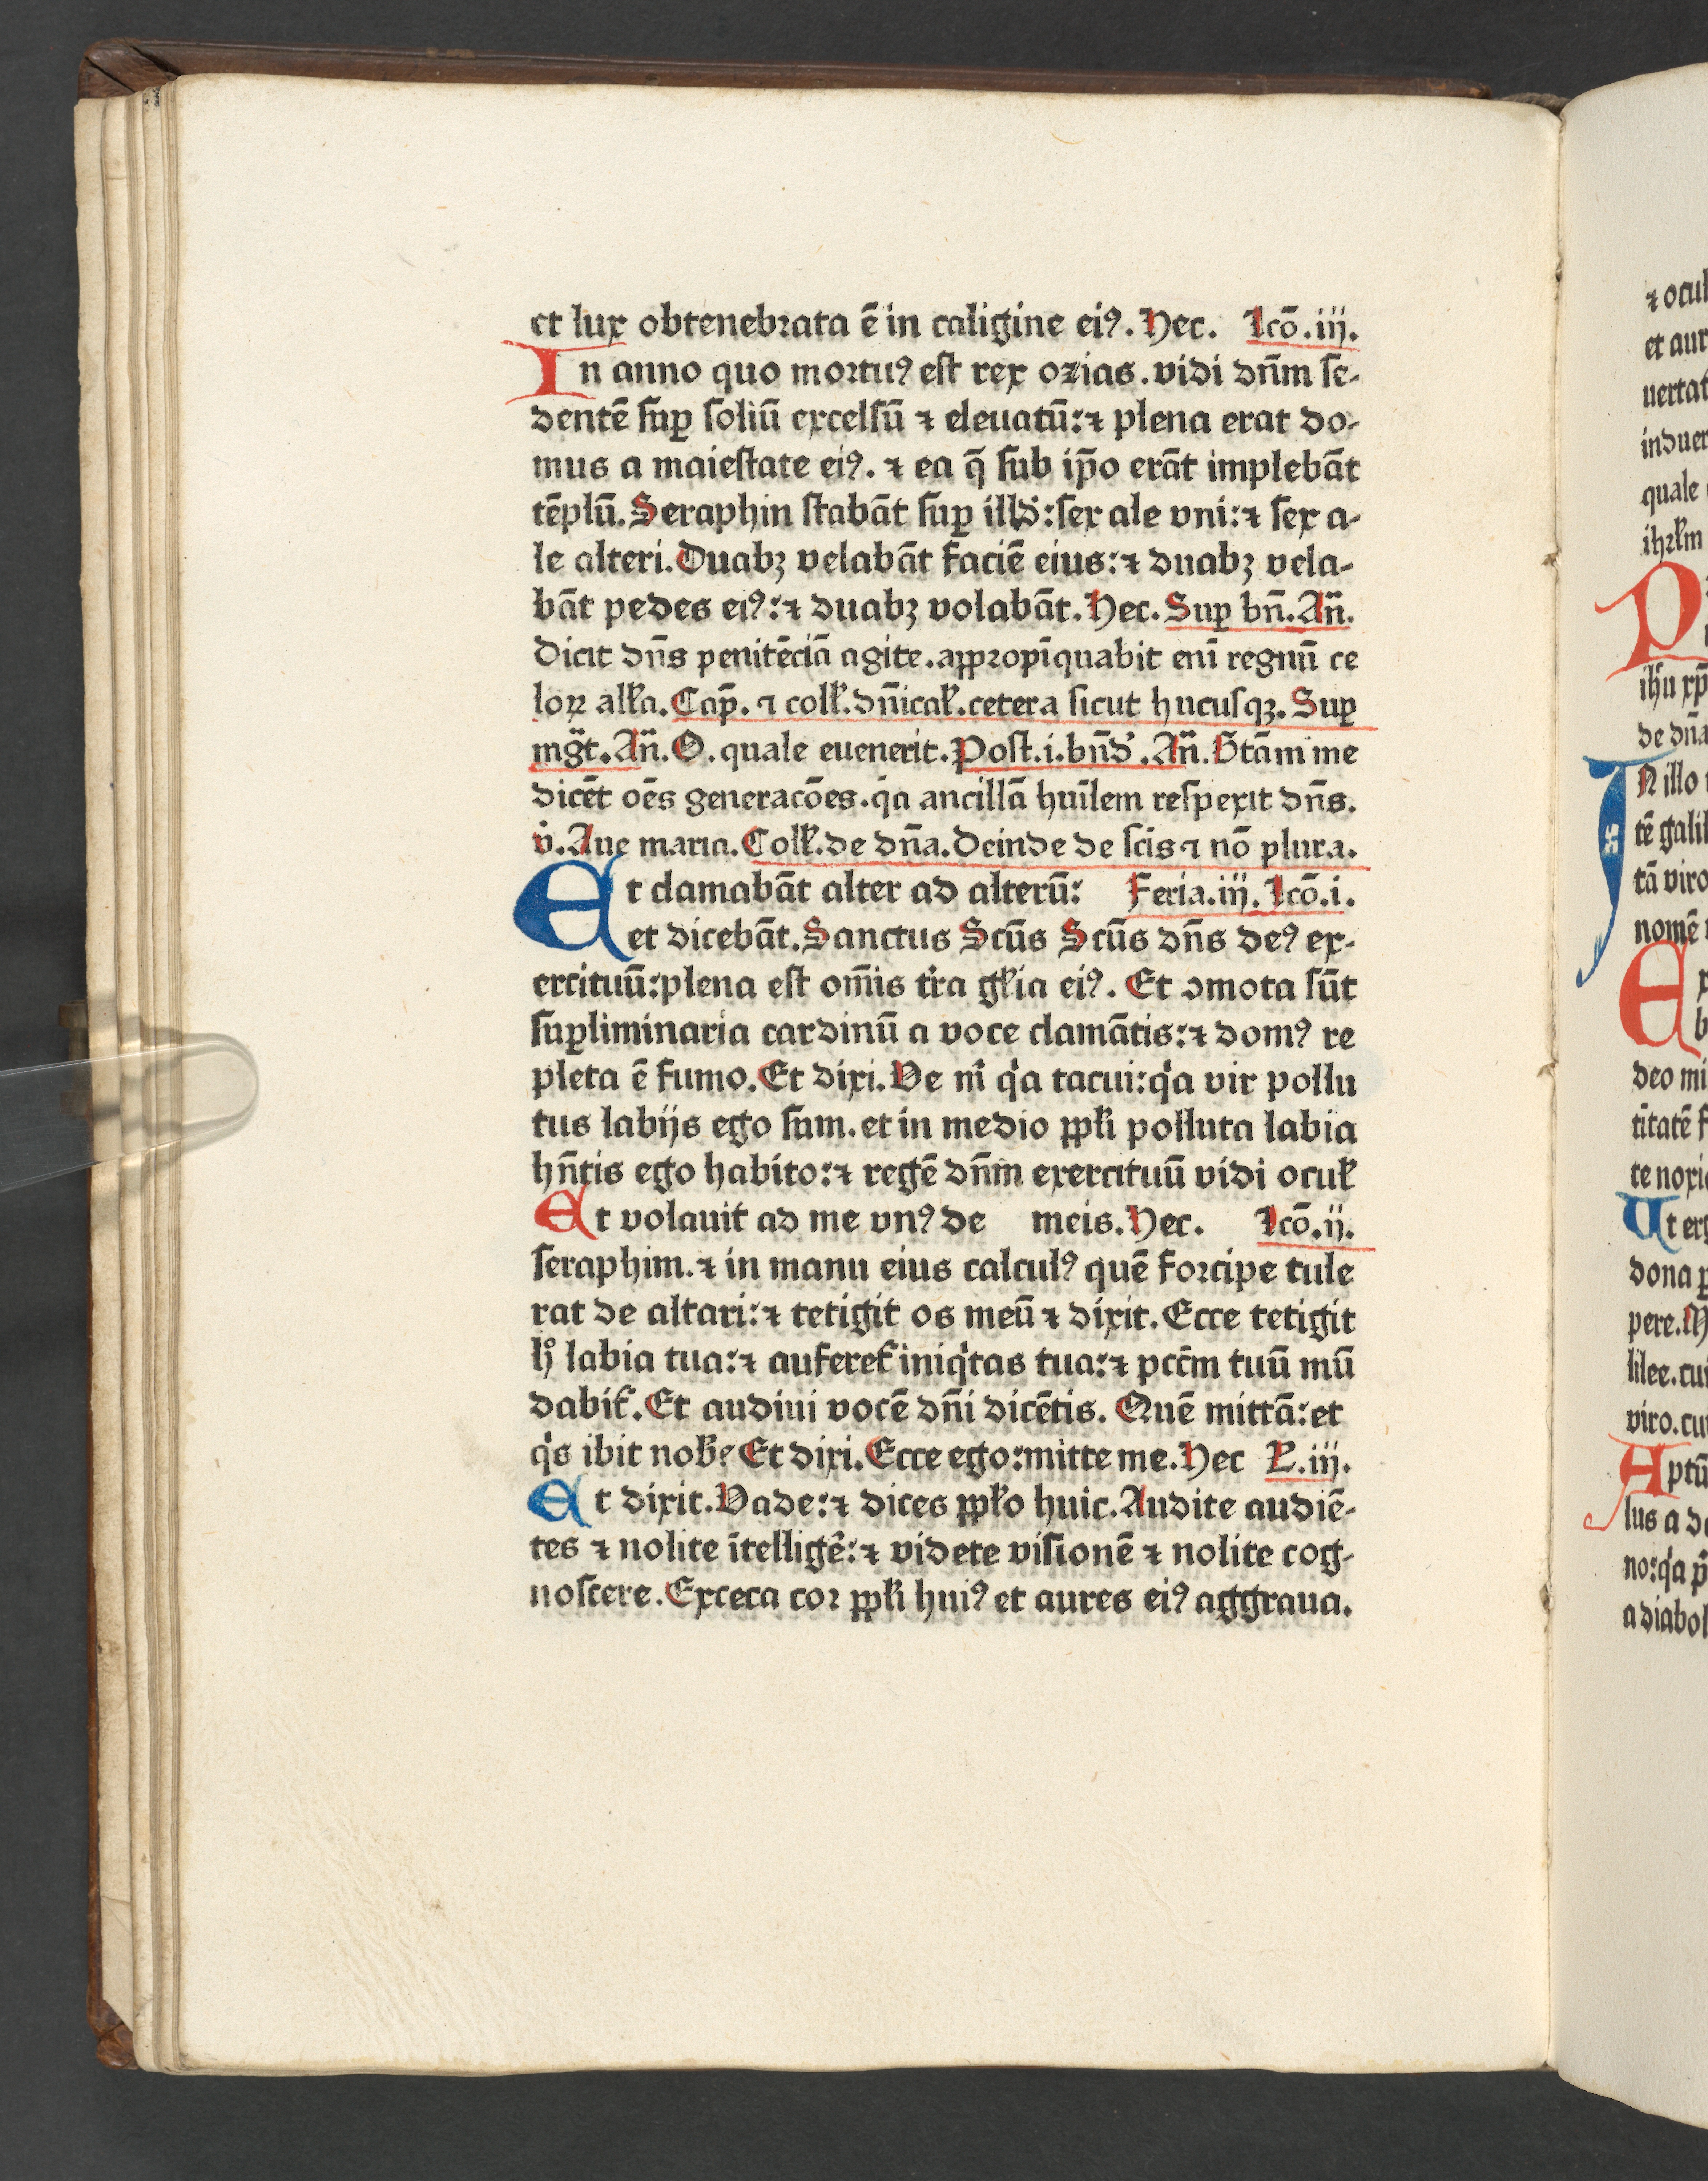 et lux obtenebrata ē in caligine eiꝰ. Hec. Lcō.iij.
In anno quo mortuꝰ est rex ozias. vidi dn̄m se-
dentē suꝑ soliū excelsū ⁊ eleuatū: ⁊ plena erat do-
mus a maiestate eiꝰ. ⁊ ea q̄ sub ip̄o erāt implebāt
tēplū. Seraphin stabāt suꝑ illď: sex ale vni: ⁊ sex a-
le alteri. Duabꝫ velabāt faciē eius: ⁊ duabꝫ vela-
bāt pedes eiꝰ: ⁊ duabꝫ volabāt. Hec. Suꝑ bn̄. An̄.
Dicit dn̄s penitēciā agite. appropīquabit eni regnū ce
loꝝ alľa. Cap̄. ⁊ colľ. dn̄icaľ. cetera sicut hucusqꝫ. Suꝑ
mgt̄. An̄. O. quale euenerit. Post.i. bn̄d. An̄. Btām me
dicēt oēs generacōes. qͥa ancillā huīlem respexit dn̄s.
v̊. Aue maria. Colľ. de dn̄a. Deinde de scīs ⁊ nō plura.
Et clamabāt alter ad alterū: Feria.iij. Lcō.i.
et dicebāt. Sanctus Scūs Scūs dn̄s deꝰ ex-
ercituū: plena est om̄is tr̄a gľia eiꝰ. Et ꝯmota sūt
suꝑliminaria cardinū a voce clamātis: ⁊ domꝰ re
pleta ē fumo. Et dixi. Ve m̄ qͥa tacui: qͥa vir pollu
tus labijs ego sum. et in medio ppľi polluta labia
hn̄tis ego habito: ⁊ regē dn̄m exercituū vidi ocuľ
Et volauit ad me vnꝰ de meis. Hec. Lcō.ij.
seraphim. ⁊ in manu eius calculꝰ quē forcipe tule
rat de altari: ⁊ tetigit os meū ⁊ dixit. Ecce tetigit
hͦ labia tua: ⁊ auferet᷑ iniqͥtas tua: ⁊ pcc̄m tuū mū
dabit᷑. Et audiui vocē dn̄i dicētis. Quē mittā: et
qͥs ibit nob̄? Et dixi. Ecce ego: mitte me. Hec L.iij.
Et dixit. Vade: ⁊ dices ppľo huic. Audite audiē-
tes ⁊ nolite ītelligē: ⁊ videte visionē ⁊ nolite cog-
noscere. Exceca cor ppľi huiꝰ et aures eiꝰ aggraua.
⁊ ocul
et aur
uertat
induer
quale
ihrľm
P
ihu xp̄
de dn̄a
IN illo
tē galil
tā viro
nomē
Ex
b
deo mi
tītatē f
te noxi
Ut erg
dona p
pere. M
lilee. cui
viro. cu
Aptū
lus a de
no: qͥa p̄
a diabol